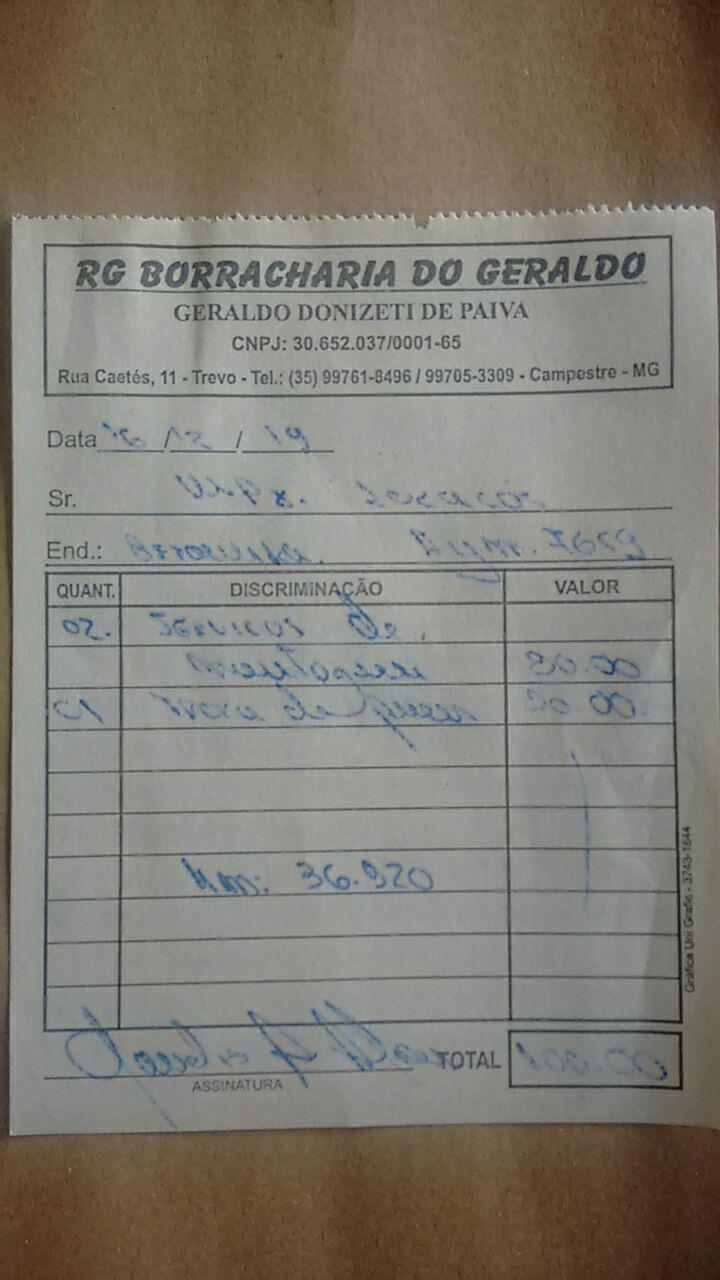 RG BORRACHARIA DO GERALDO
GERALDO DONIZETI DE PAIVA
CNPJ: 30.652.037/0001-65
Rua Caetés, 11 - Trevo - Tel.: (35) 99761-8496 / 99705-3309 - Campestre - MG
Data 16 / 12 / 19
Sr.
End.:
QUANT. DISCRIMINAÇÃO VALOR
02. Serviços de
montagem
01 de 00
Km: 36.920
TOTAL 100.00
ASSINATURA
Gráfica Uni Grafic - 3743-1644